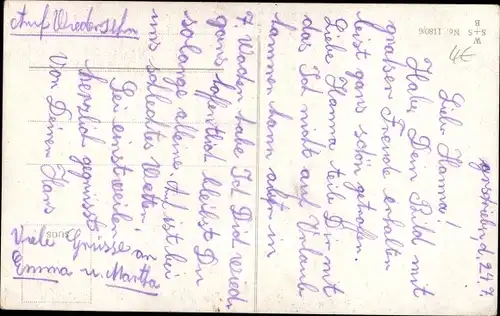 geschrieben, d. 24.7.
Liebe Hanna!
Habe Dein Bild mit
großer Freude erhalten
bist ganz schön getroffen.
Liebe Hanna teile Dir mit
das Ich nicht auf Urlaub
kommen kann erst in
7 Wochen habe Ich Dich wied.
ganz hoffentlich bleibst Du
solange alleine. Es ist bei
uns schlechtes Wetter.
Sei einstweilen
herzlich gegrüsst
Von Deinem Hans
Auf Wiedersehn
Viele Grüsse an
Emma u. Martha
W
S+S No. 1180/6
B